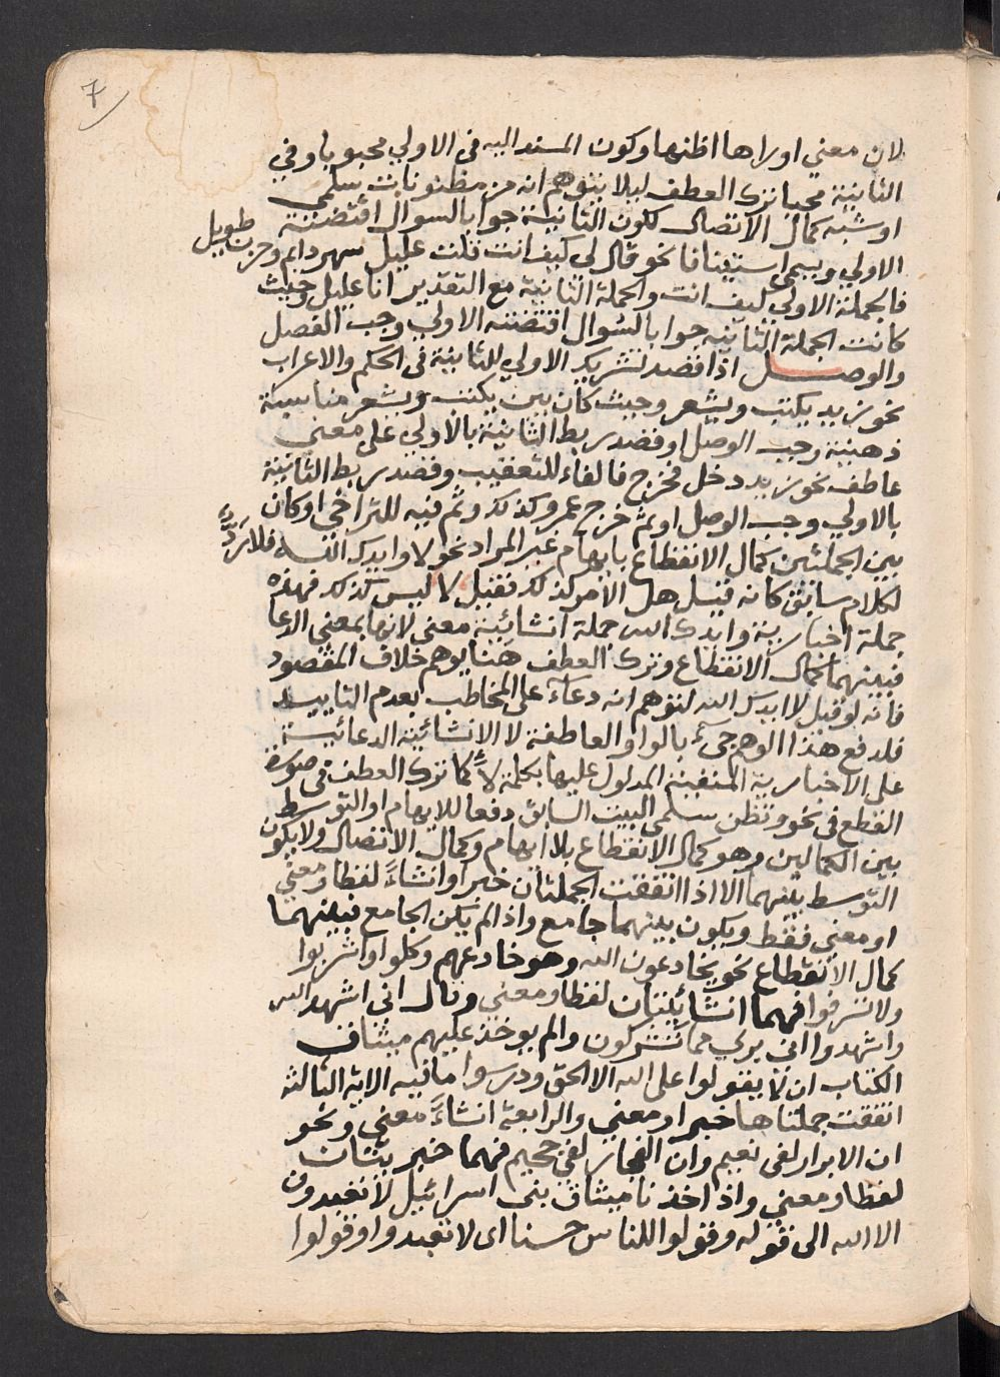 7
لان معني اوراها اظنها وكون المسند اليه في الاولي محبوبا وفي
الثانية محبا ترك العطف ليلا يتوهم انه من مظنونات سلمي
او شبه كمال الاتصال لكون الثانية جوابا لسوال اقتضته
الاولي ويسمي استينافا نحو قال لي كيف انت قلت عليل سهر دايم وحزن طويل
فالجملة الاولي كيف انت والجملة الثانية مع التقدير انا عليل وحيث
كانت الجملة الثانيه جوابا لسوال اقتضته الاولي وجب الفصل
والوصل اذا قصد تشريك الاولي للثانية في الحكم والاعراب
نحو زيد يكتب ويشعر وحيث كان بين يكتب ويشعر مناسبة
ذهنية وجب الوصل او قصد ربط الثانية بالاولي علي معني
عاطف نحو زيد دخل فخرج فالفاء للتعقيب وقصد ربط الثانية
بالاولي وجب الوصل او ثم خرج عمرو كذلك وثم فيه للتراخي او كان
بين الجملتين كمال الانقطاع بايهام غير المراد نحو لا وايدك الله فلا رد
لكلام سابق كانه قيل هل الامر كذلك فقيل لا ليس كذلك فهذه
جملة اخبارية وايدك الله جملة انشائية معني لانها بمعني الدعا
فبينهما كمال الانقطاع وترك العطف هنا يوهم خلاف المقصود
فانه لو قيل لا ايدك الله لتوهم انه دعاء علي المخاطب بعدم التاييد
فلدفع هذا الوهم جيء بالواو العاطفة لا الانشائية الدعائية
علي الاخبارية المنفية المدلول عليها بكلمة لا كما ترك العطف في صورة
القطع في نحو وتظن سلمي البيت السابق دفعا للايهام او التوسط
بين الكمالين وهو كمال الانقطاع بلا ايهام وكمال الاتصال ولا يكون
التوسط بينهما الا اذا اتفقت الجملتان خبرا وانشاء لفظا ومعني
او معني فقط ويكون بينهما جامع واذا لم يكن الجامع فبينهما
كمال الانقطاع نحو يخادعون الله وهو خادعهم وكلوا واشربوا
ولا تسرفوا فهما انشائيتان لفظا ومعني وقال اني اشهد الله
واشهدوا اني بري مما تشركون والم يوخذ عليهم ميثاق
الكتاب ان لا يقولوا علي الله الا الحق ودرسوا ما فيه الاية الثالثة
اتفقت جملتاها خبرا ومعني والرابعة انشاء معني ونحو
ان الابرار لفي نعيم وان الفجار لفي جحيم فهما خبريتان
لفظا ومعني واذ اخذنا ميثاق بني اسرائيل لا تعبدون
الا الله الي قوله وقولوا للناس حسنا اي لا تعبدوا وقولوا